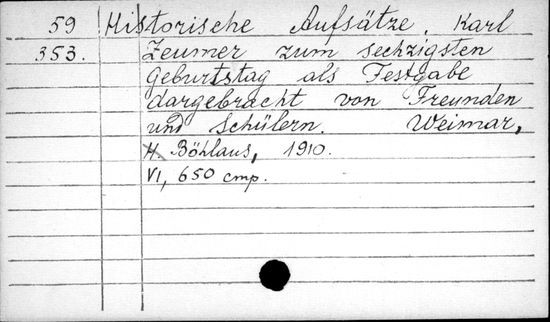 59 Historische Aufsätze. Karl
353. Zeumer zum sechzigsten
Geburtstag als Festgabe
dargebracht von Freunden
und Schülern. Weimar,
H. Böhlaus, 1910.
VI, 650 стр.